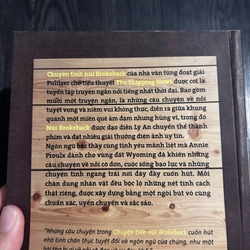 Chuyện tình núi Brokeback của nhà văn từng đoạt giải
Pulitzer cho tiểu thuyết The Shipping News được coi là
tuyển tập truyện ngắn nổi tiếng nhất thời đại. Bao gồm
mười một truyện ngắn, là những câu chuyện về nỗi
tuyệt vọng và niềm vui không thực, diễn ra giữa khung
quanh một miền quê ảm đạm nhưng hùng vĩ, trong đó
Núi Brokeback được đạo diễn Lý An chuyển thể thành
phim và đạt nhiều giải thưởng điện ảnh uy tín.
Ngôn ngữ bộc thấy cùng tình yêu mãnh liệt mà Annie
Proulx dành cho vùng đất Wyoming đã khiến những
câu chuyện về nỗi cô đơn, cuộc sống bạo lực và những
chuyện tình ngang trái nơi đây đầy cuốn hút. Mỗi
chân dung nhân vật đều bộc lộ những nét tính cách
thật riêng, được xây dựng bằng một ngòi bút vô cùng
chuẩn xác, uyển chuyển và sắc sảo.
"Những câu chuyện trong Chuyện tình núi Brokeback cuốn hút
nhờ tính chân thực tuyệt đối và ngôn ngữ của chúng, như một